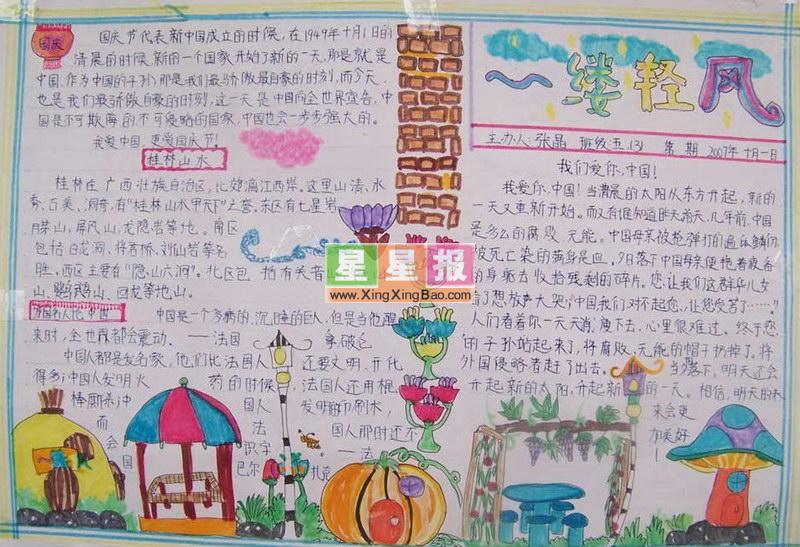 国庆
国庆节代表新中国成立的时候，在1949年十月1日的
清晨的时候，新的一个国家开始了新的一天，那是就是
中国，作为中国的子孙那是我们最骄傲最自豪的时刻，而今天，
也是我们最骄傲自豪的时刻，这一天是中国向全世界宣告，中
国是不可欺侮的，不可侵略的国家，中国也会一步步强大的。
我爱中国，更爱国庆节！
桂林山水
桂林在广西壮族自治区，北郊漓江西岸。这里山清、水
秀、石美、洞奇，有“桂林山水甲天下”之誉，东区有七星岩
月牙山，屏风山，龙隐岩等地。南区
包括白龙洞、将苔桥、刘仙岩等名
胜，西区主要有“隐山六洞”。北区包括有
山、鹦鹉山、回龙等地山。
中国是一个多病的，沉睡的巨人，但是当他醒
来时，全世界都会震动。——法国 拿破仑
中国人都是发名家，他们比法国人还要文明，开化
得多；中国人发明火药的时候，法国人还用棍
棒厮杀；中国人发明的印刷术，
而法国人那时还不
会识字 ——法
国巴尔扎克
一缕轻风
主办人：张晶 班级：五.(3) 第 期 2007年十月一日
我们爱你，中国！
我爱你，中国！当清晨的太阳从东方升起，新的
一天又重新开始。而又有谁知道昨天前天，几年前，中国
是多么的腐败，无能。中国母亲被枪弹打的遍体鳞伤
被死亡染的满身是血。夕日落下中国母亲便拖着疲备
的身躯去收拾残剩的碎片。您，让我们这群华儿女
看了想放声大哭；中国我们对不起您、让您受苦了……！
人们看着你一天天消瘦下去，心里很难过。终于您
的子孙站起来了，将腐败、无能的帽子扔掉了。将
外国侵略者赶了出去。当落下，明天还会
升起新的太阳，升起新的一天。相信，明天的未
来会更
加美好
！
星星报
www.XingXingBao.com